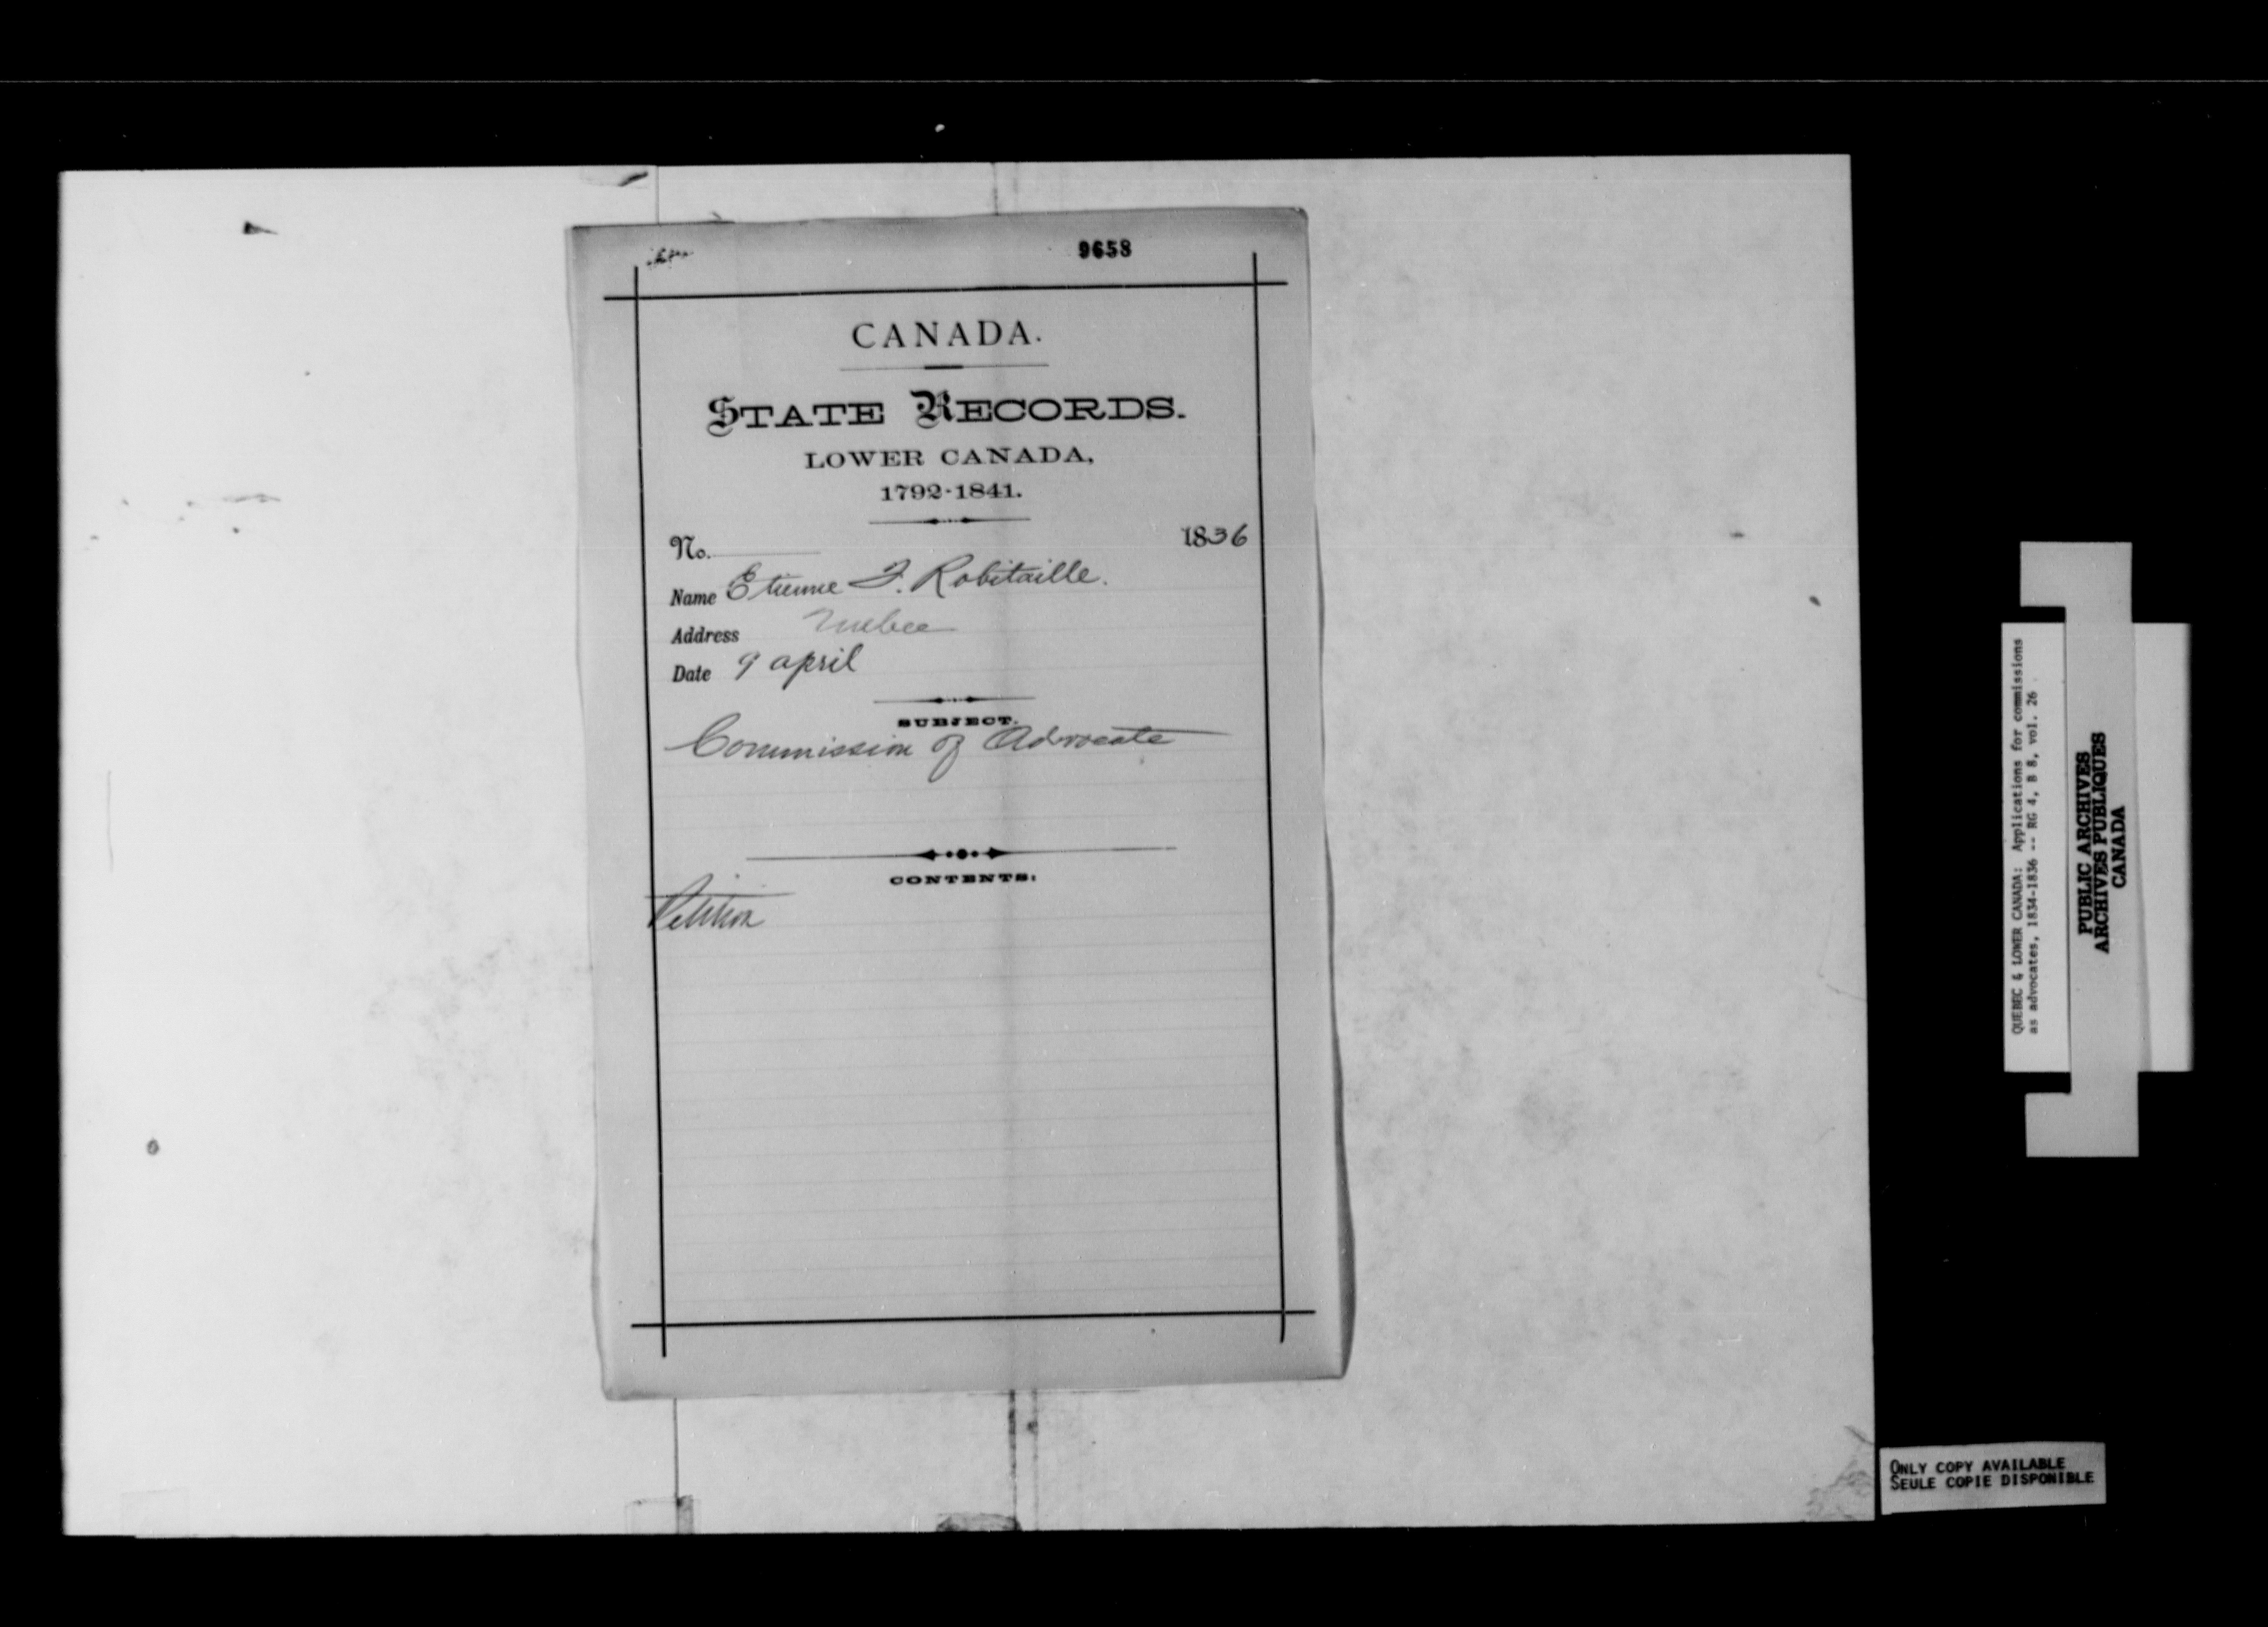 9658
CANADA.
STATE RECORDS.
LOWER CANADA,
1792-1841.
No. 1836
Name Etienne F. Robitaille.
Address Quebec
Date 9 april
SUBJECT.
Commission of Advocate
CONTENTS:
Petition
QUEBEC & LOWER CANADA: Applications for commissions
as advocates, 1834-1836 -- RG 4, B 8, vol. 26
PUBLIC ARCHIVES
ARCHIVES PUBLIQUES
CANADA
ONLY COPY AVAILABLE
SEULE COPIE DISPONIBLE